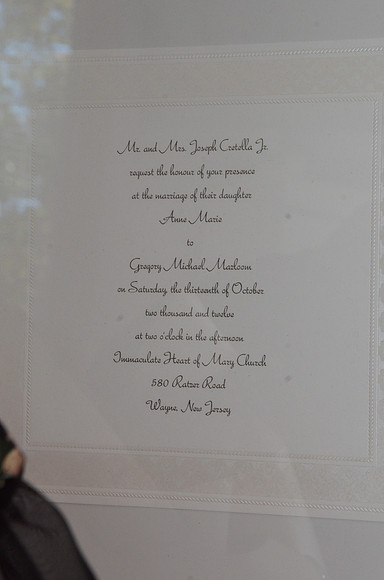 Mr. and Mrs. Joseph Cretella Jr.
request the honour of your presence
at the marriage of their daughter
Anne Marie
to
Gregory Michael Marloom
on Saturday, the thirteenth of October
two thousand and twelve
at two o'clock in the afternoon
Immaculate Heart of Mary Church
580 Ratzer Road
Wayne, New Jersey